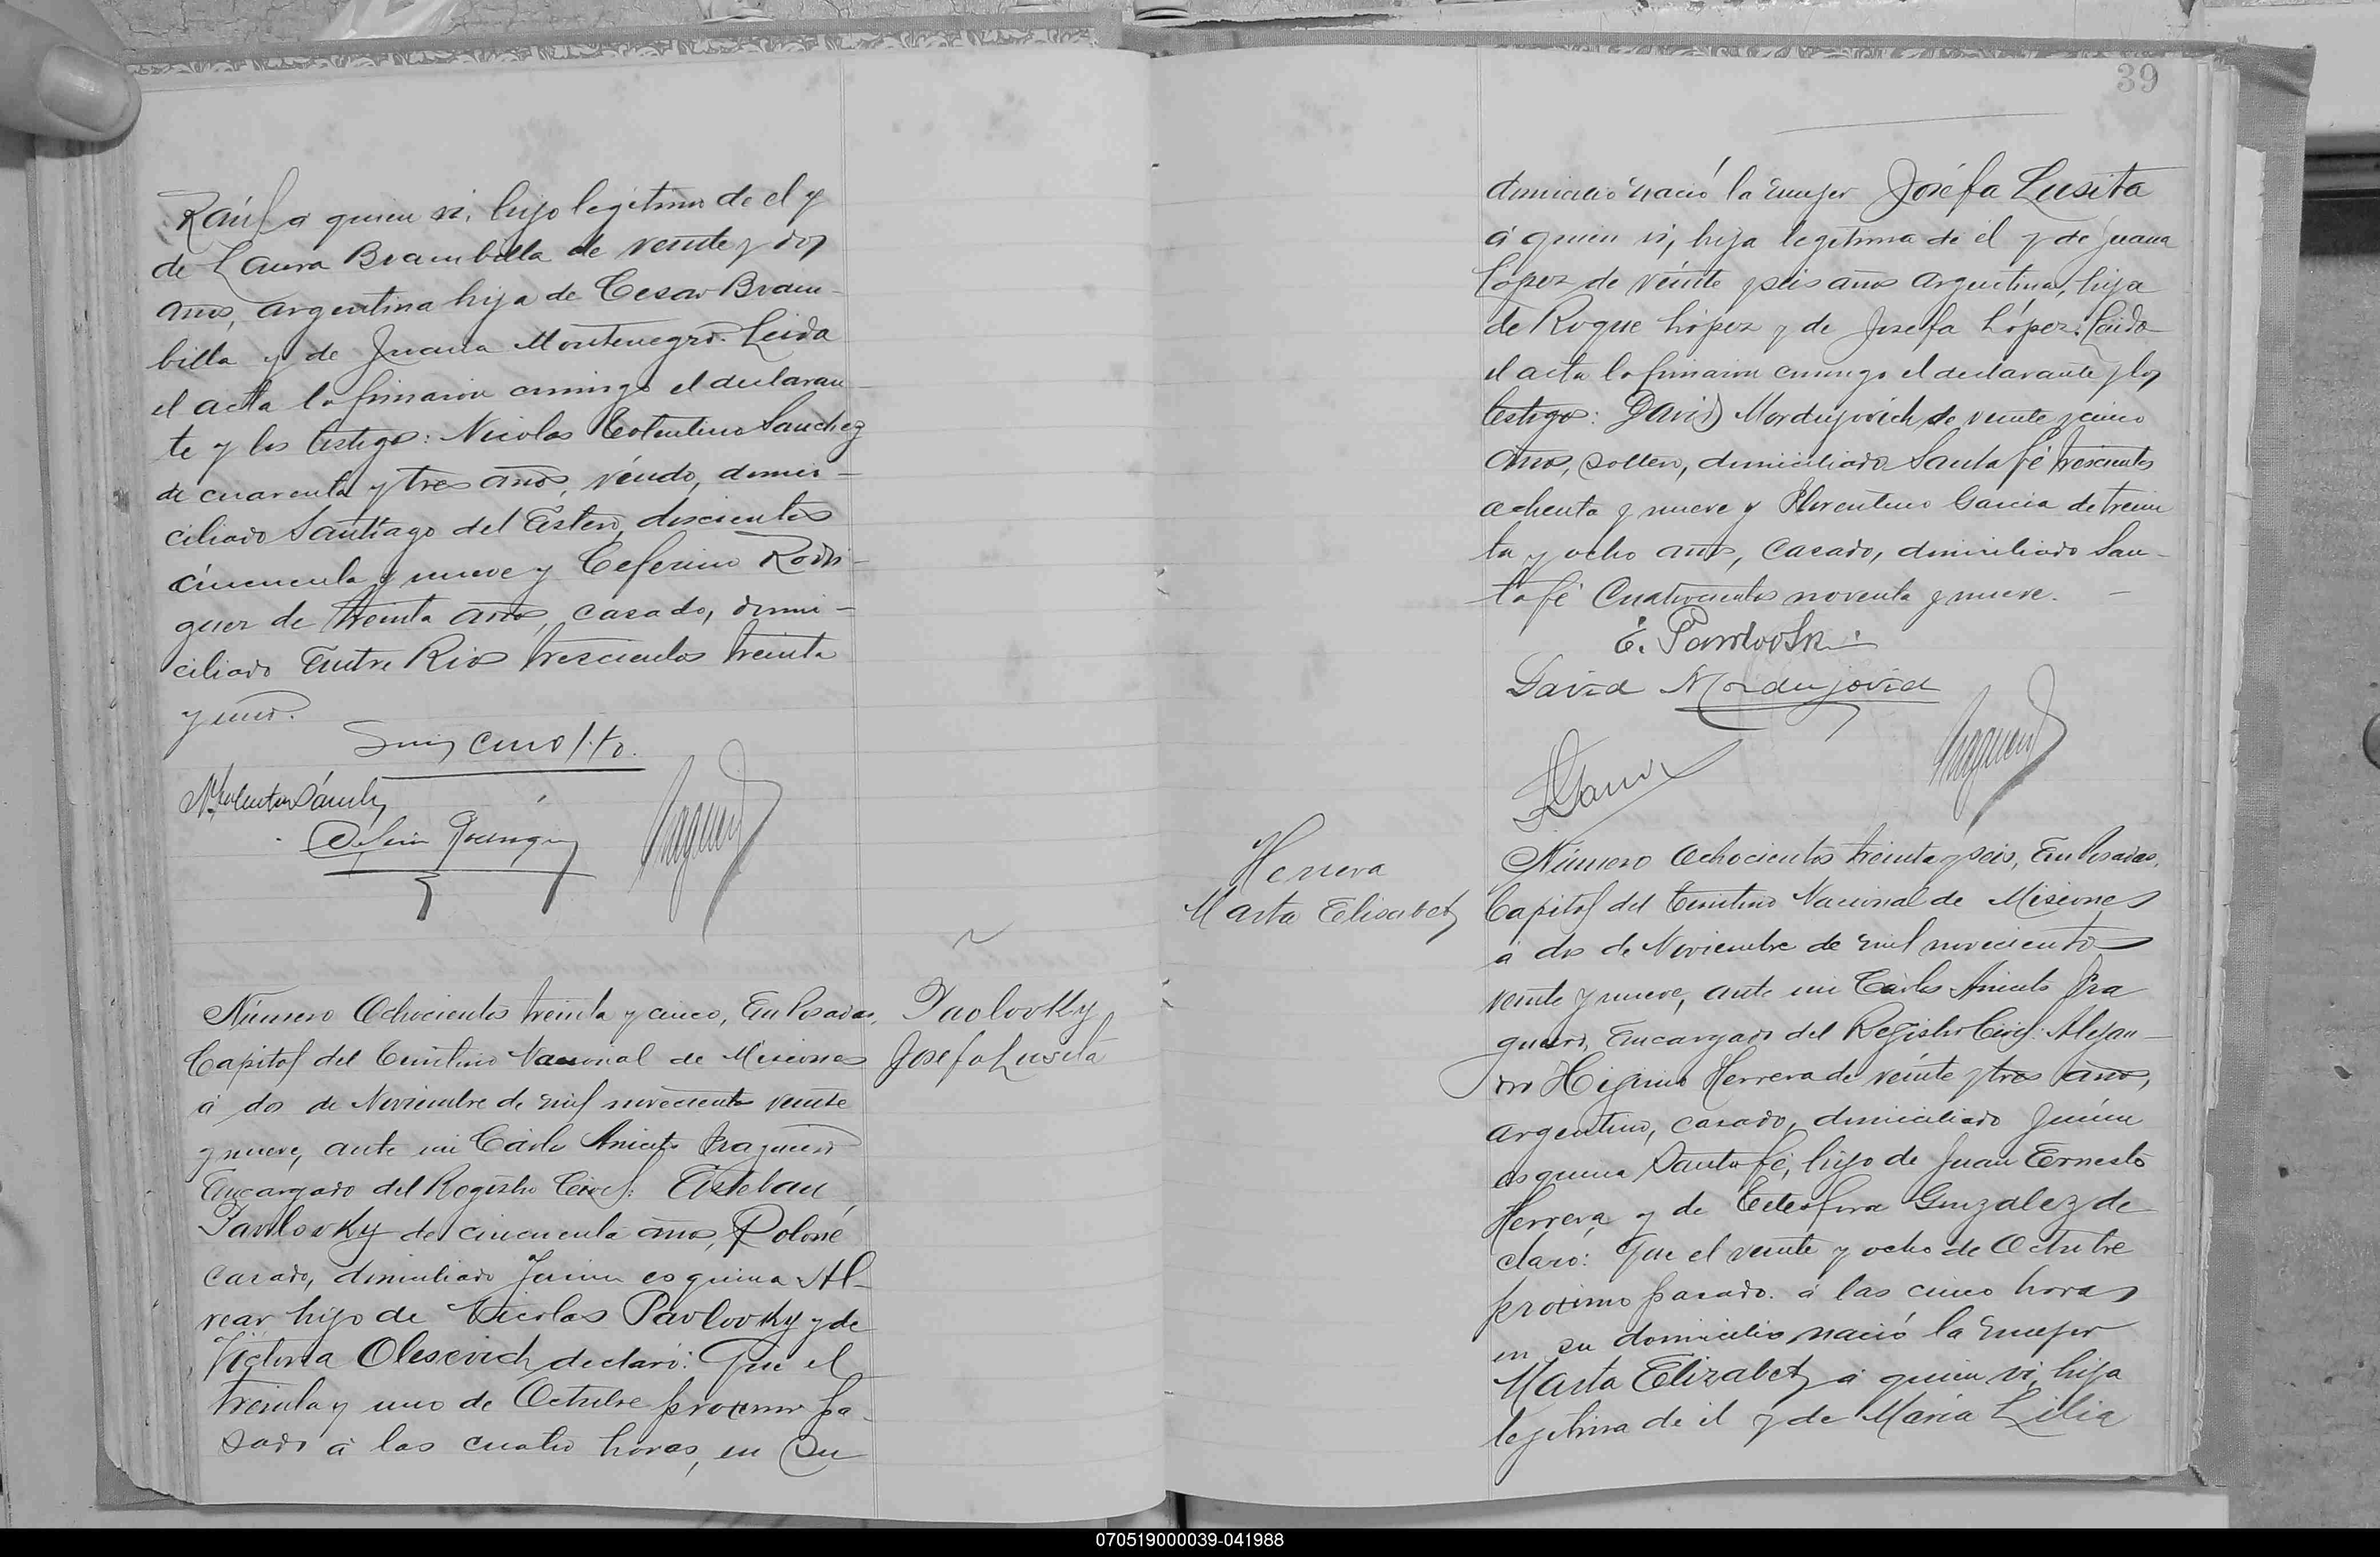 Raúl a quien vi, hijo legítimo de el y
de Laura Brambilla de veinte y dos
años, argentina hija de Cesar Bram-
billa y de Juana Montenegro. Leida
el acta la firmaron conmigo el declaran-
te y los testigos: Nicolas Tolentino Sanchez
de cuarenta y tres años, viudo, domi-
ciliado Santiago del Estero, doscientos
cincuenta y nueve y Ceferino Rodri-
guez de treinta años, casado, domi-
ciliado Entre Rios trescientos treinta
y uno.
Número Ochocientos treinta y cinco, En Posadas,
Capital del Territorio Nacional de Misiones
á dos de Noviembre de mil novecientos veinte
y nueve, ante mi Carlos Aniceto Fraguero
Encargado del Registro Civil: Esteban
Pavlovky de cincuenta años, Polone
casado, domiciliado Junin esquina Al-
vear hijo de Nicolas Pavlovky y de
Victoria Olesevich, declaró: Que el
treinta y uno de Octubre proximo pa-
sado á las cuatro horas, en su
Pavlovky
Josefa Lusita
39
domicilio nació la mujer Joséfa Lusita
á quien vi, hija legitima de él y de Juana
López de veinte y seis años argentina, hija
de Roque López y de Josefa López. Leida
el acta la firmaron conmigo el declarante y los
testigos: David Mordujovich de veinte y cinco
años, soltero, domiciliado Santa fé trescientos
ochenta y nueve y Florentino Garcia de trein
ta y ocho años, casado, domiciliado San-
ta fé Cuatrocientos noventa y nueve.
David Mordujovich
Herrera
Marta Elisabet
Número Ochocientos treinta y seis, En Posadas,
Capital del Territorio Nacional de Misiones
á dos de Noviembre de mil novecientos
veinte y nueve, ante mi Carlos Aniceto Fra
guero, Encargado del Registro Civil: Alejan-
dro Higinio Herrera de veinte y tres años,
argentino, casado, domiciliado Junin
esquina Santa fé, hijo de Juan Ernesto
Herrera y de Telesfora Gonzalez de
claro: Que el veinte y ocho de Octubre
proximo pasado á las cinco horas
en su domicilio nació la mujer
Marta Elizabet á quien vi, hija
legitima de él y de Maria Lilia
070519000039-041988